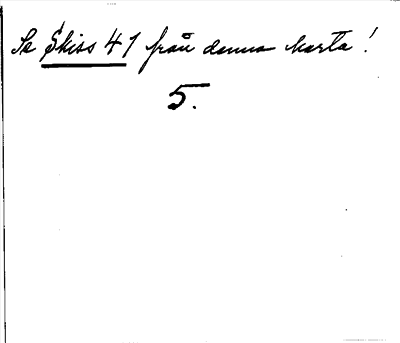 Se Skiss 41 från denna karta!
5.